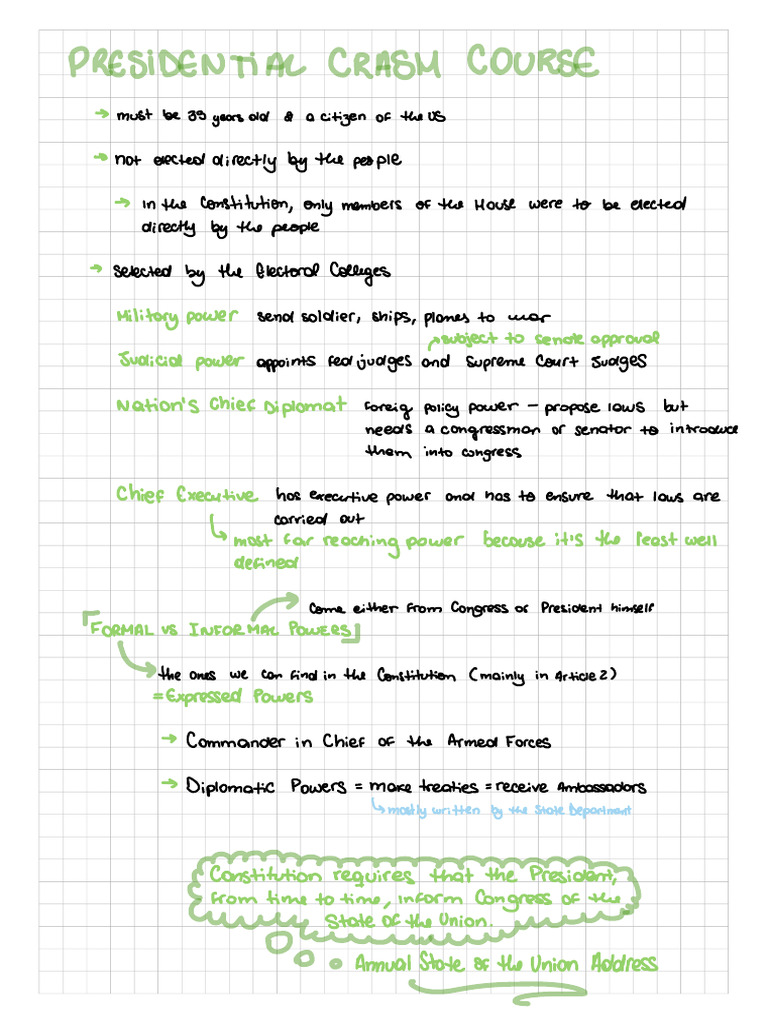 PRESIDENTIAL CRASH COURSE
→ must be 35 years old & a citizen of the US
→ not elected directly by the people
→ in the Constitution, only members of the House were to be elected
directly by the people
→ selected by the Electoral Colleges
Military power send soldier, ships, planes to war
subject to senate approval
Judicial power appoints fed judges and Supreme Court Judges
Nation's Chief Diplomat foreig policy power – propose laws but
needs a congressman or senator to introduce
them into congress
Chief Executive has executive power and has to ensure that laws are
carried out
most far reaching power because it's the least well
defined
come either from Congress or President himself
「FORMAL VS INFORMAL POWERS」
the ones we can find in the Constitution (mainly in Article 2)
= Expressed Powers
→ Commander in Chief of the Armed Forces
→ Diplomatic Powers = make treaties = receive Ambassadors
mostly written by the State Department
Constitution requires that the President,
from time to time, inform Congress of the
State of the Union.
Annual State of the Union Address